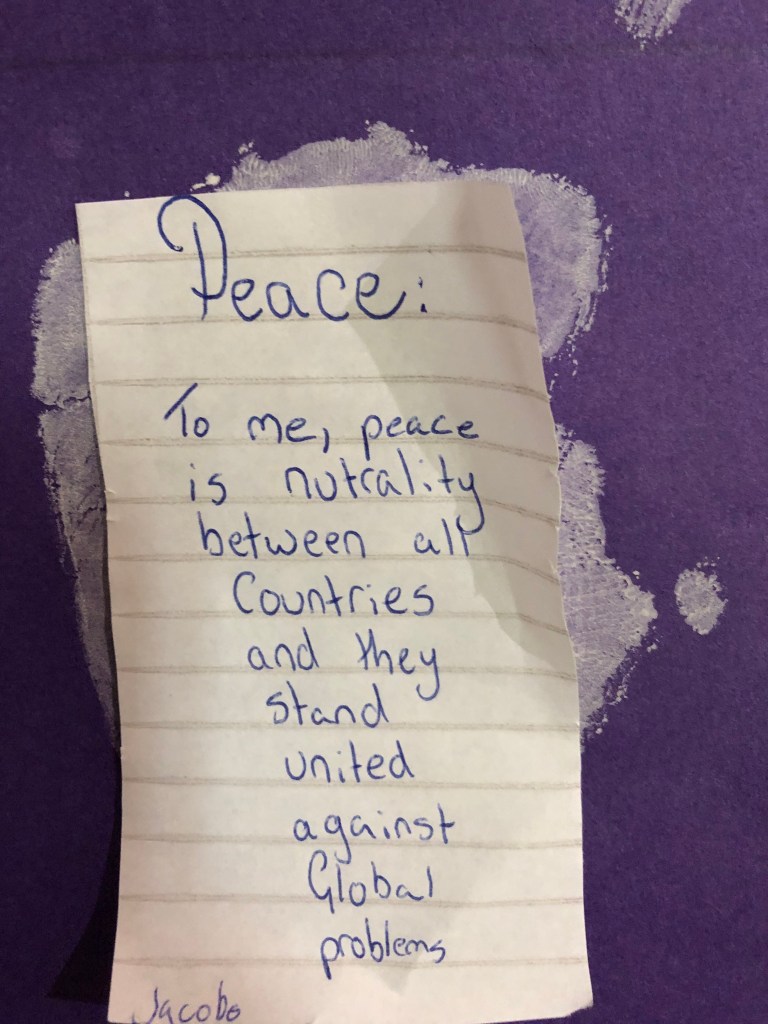 Peace:
To me, peace
is nutrality
between all
Countries
and they
stand
united
against
Global
problems
Jacobo